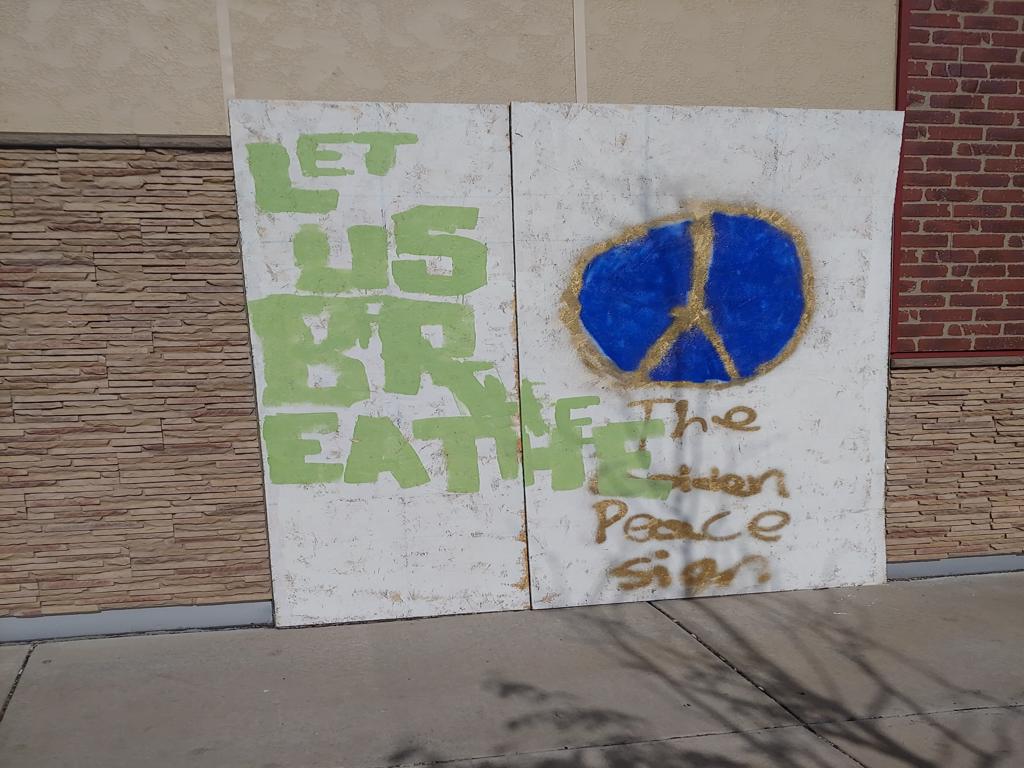 LET
US
BR
EATHE
ME
The
Peace
sign